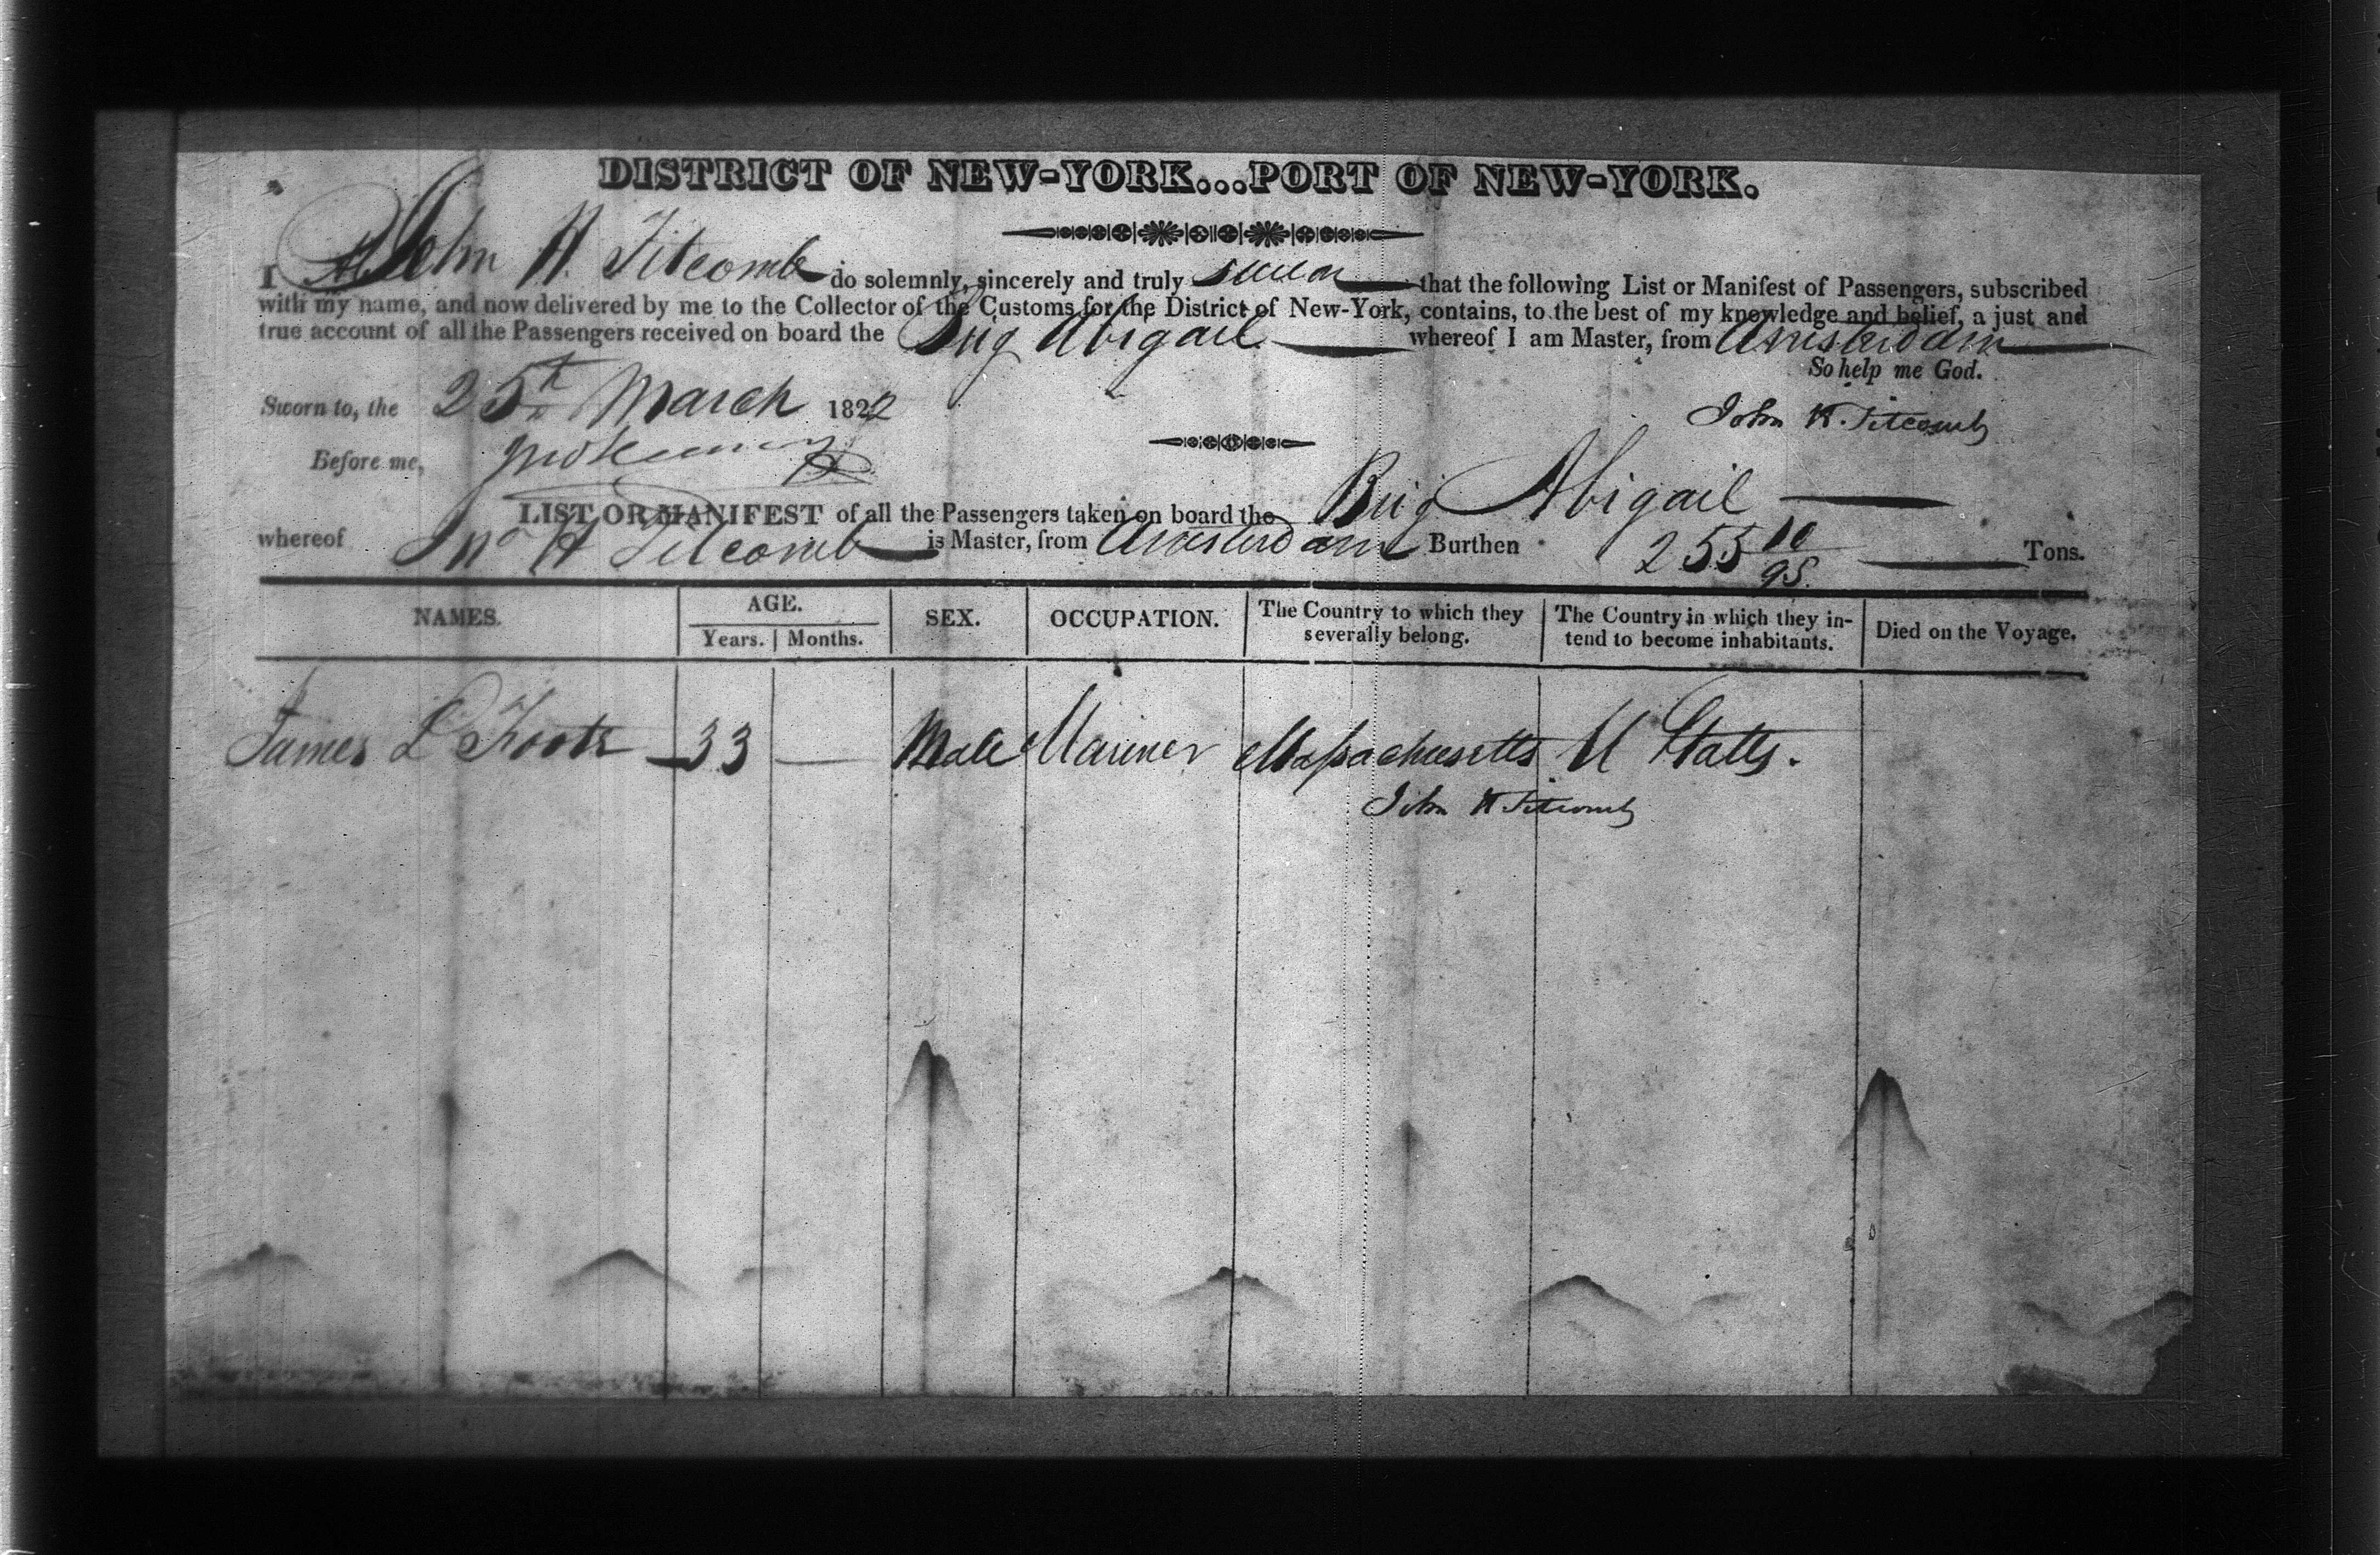 DISTRICT OF NEW-YORK...PORT OF NEW-YORK.
I John H. Titcomb do solemnly, sincerely and truly swear that the following List or Manifest of Passengers, subscribed
with my name, and now delivered by me to the Collector of the Customs for the District of New-York, contains, to the best of my knowledge and belief, a just and
true account of all the Passengers received on board the Brig Abigail whereof I am Master, from Amsterdam
So help me God.
Sworn to, the 25th March 1822
John H. Titcomb
Before me,
LIST OR MANIFEST of all the Passengers taken on board the Brig Abigail
whereof Jno H Titcomb is Master, from Amsterdam Burthen 255 10/95 Tons.
NAMES. AGE. SEX. OCCUPATION. The Country to which they severally belong. The Country in which they in-tend to become inhabitants. Died on the Voyage.
Years. Months.
James L 33 Male Mariner Massachusetts U States.
John H Titcomb